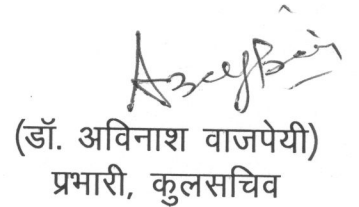 (डॉ. अविनाश वाजपेयी)
प्रभारी, कुलसचिव